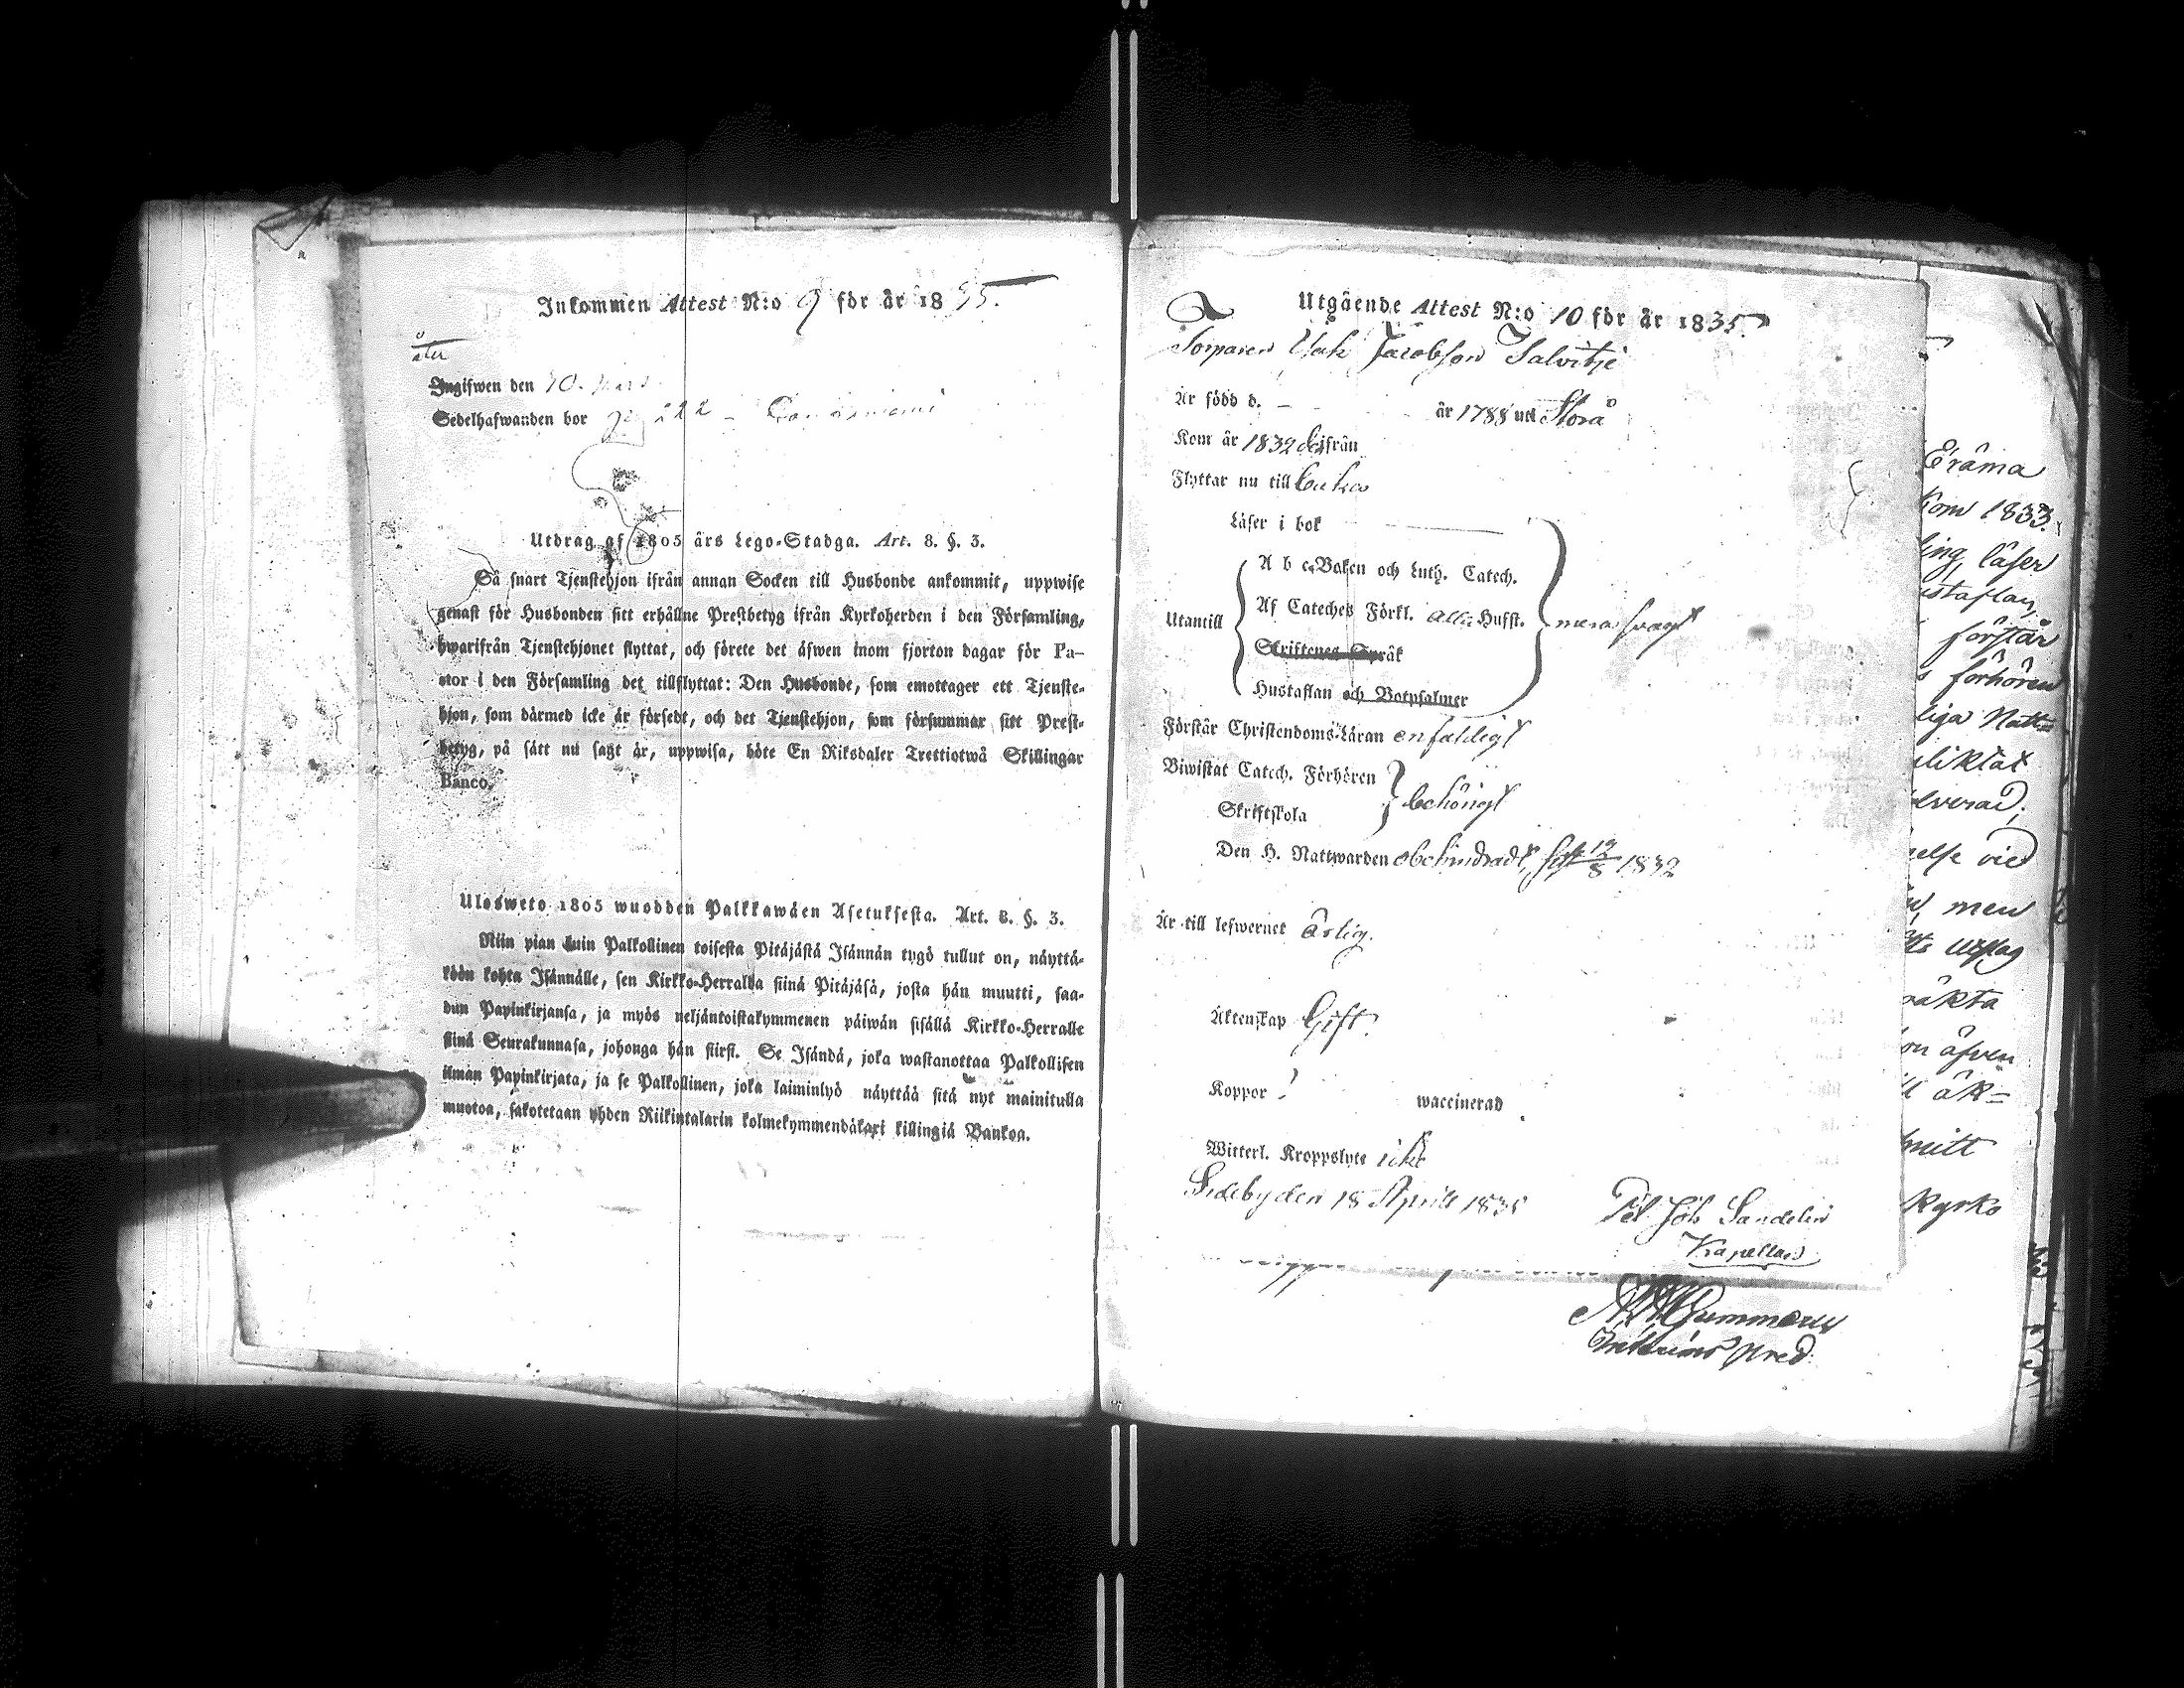 Inkommen Attest N:o 9 för år 1835.
åter
Ingifwen den 30.
Sedelhafwanden bor
Utdrag af 1805 års Lego-Stadga. Art. 8. §. 3.
Så snart Tjenstehjon ifrån annan Socken till Husbonde ankommit, uppwise
genast för Husbonden sitt erhållne Prestbetyg ifrån Kyrkoherden i den Församling,
hwarifrån Tjenstehjonet flyttat, och förete det äfwen inom fjorton dagar för Pa-
stor i den Församling det tillflyttat: Den Husbonde, som emottager ett Tjenste-
hjon, som därmed icke är försedt, och det Tjenstehjon, som försummar sitt Prest-
betyg, på sätt nu sagt är, uppwisa, böte En Riksdaler Trettiotwå Skillingar
Banco.
Ulosweto 1805 wuodden Palkkawäen Asetuksesta. Art. 8. §. 3.
Niin pian kuin Palkollinen toisesta Pitäjästä Isännän tygö tullut on, näyttä-
köön kohta Isännälle, sen Kirkko-Herralda siinä Pitäjäsä, josta hän muutti, saa-
dun Papinkirjansa, ja myös neljäntoistakymmenen päiwän sisällä Kirkko-Herralle
siinä Seurakunnasa, johonga hän siirsi. Se Isändä, joka wastanottaa Palkollisen
ilman Papinkirjata, ja se Palkollinen, joka laiminlyö näyttää sitä nyt mainitulla
muotoa, sakotetaan yhden Riikintalarin kolmekymmendäkaxi killingiä Bankoa.
Utgående Attest N:o 10 för år 1835.
Torparen Isak Jacobsson Salvitje
Är född d. – år 1788 uti Storå
Kom år 1832 derifrån
Flyttar nu till
Läser i bok
A b c-Boken och Luth. Catech.
Utantill Af Cateches Förkl. alla Hufst. mera svagt
Skriftenes Språk
Hustaflan och Botpsalmer
Förstår Christendoms-Läran enfaldigt
Biwistat Catech. Förhören
Skriftskola behörigt
Den H. Nattwarden obehindradt, sist 12/8 1832
Är till lefwernet ärlig.
Äktenskap Gift.
Koppor waccinerad
Witterl. Kroppslyte icke
Sideby den 18 April 1835
Joh Sandelin
Kapellan
Gummerus
pred.
Eräma
Kom 1833.
läser
förstår
förhören
liga Natt-
men
äfven
Kyrko